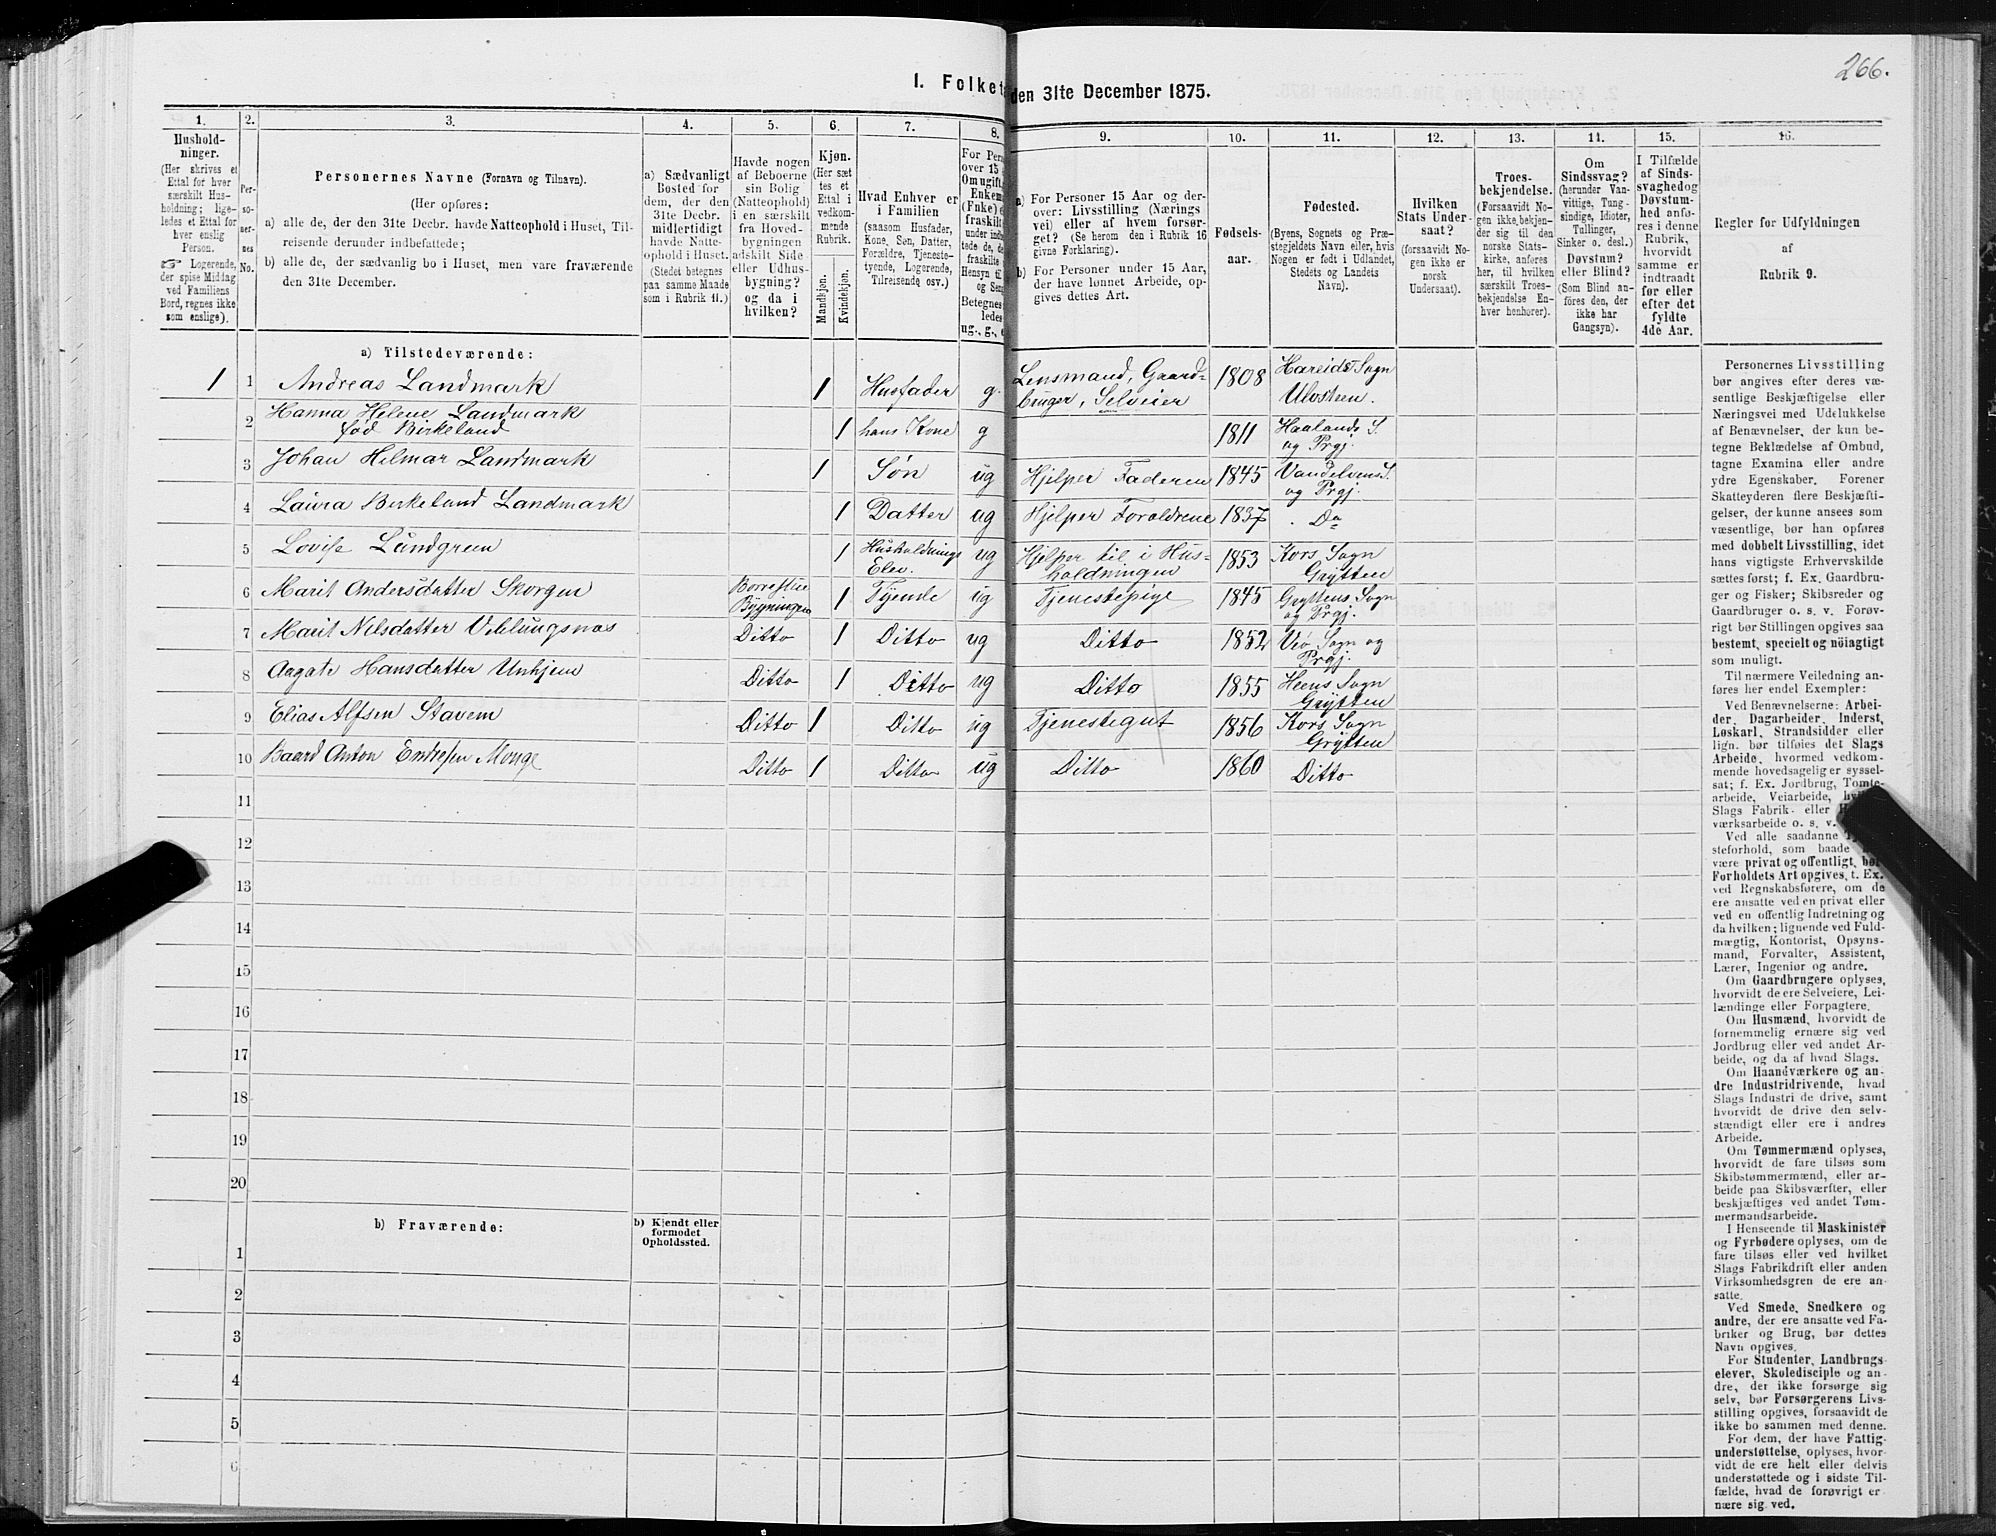 266.
1. Folket den 31te December 1875.
1. 2. 3. 4. 5. 6. 7. 8. 9. 10. 11. 12. 13. 14. 15. 16.
Hushold-
ninger.
(Her skrives et
Ettal for hver
særskilt Hus-
holdning; lige-
ledes et Ettal for
hver enslig
Person.
☞ Logerende,
der spise Middag
ved Familiens
Bord, regnes ikke
som enslige).
Per-
so-
ner-
nes
No.
Personernes Navne (Fornavn og Tilnavn).
(Her opføres:
a) alle de, der den 31te Decbr. havde Natteophold i Huset, Til-
reisende derunder indbefattede;
b) alle de, der sædvanlig bo i Huset, men vare fraværende
den 31te December.
a) Sædvanligt
Bosted for
dem, der den
31te Decbr.
midlertidigt
havde Natte-
ophold i Huset.
(Stedet betegnes
paa samme Maade
som i Rubrik 11.)
Havde nogen
af Beboerne
sin Bolig
(Natteophold)
i en særskilt
fra Hoved-
bygningen
adskilt Side
eller Udhus-
bygning?
og da i
hvilken?
Kjøn.
(Her sæt
tes et
Ettal i
vedkom-
mende
Rubrik.
Mandkjøn.
Kvindekjøn.
Hvad Enhver er
i Familien
(saasom Husfader,
Kone, Søn, Datter,
Forældre, Tjeneste-
tyende, Logerende,
Tilreisende osv.)
For Pers
over 15
Om ugift,
Enkem
(Enke) e
fraskilt
under indbe
tede de, de
fraskilte
Hensyn til
og Sen
Betegnes
ledes
ug., g., e
a) For Personer 15 Aar og der-
over: Livsstilling (Nærings
vei) eller af hvem forsør-
get? (Se herom den i Rubrik 16
givne Forklaring).
b) For Personer under 15 Aar,
der have lønnet Arbeide, op-
gives dettes Art.
Fødsels-
aar.
Fødested.
(Byens, Sognets og Præ-
stegjeldets Navn eller, hvis
Nogen er født i Udlandet,
Stedets og Landets
Navn).
Hvilken
Stats Under-
saat?
(forsaavidt No-
gen ikke er
norsk
Undersaat).
Troes-
bekjendelse.
(Forsaavidt No-
gen ikke bekjen-
der sig til den
norske Stats-
kirke, anføres
her, til hvilken
særskilt Troes-
bekjendelse En-
hver henhører).
Om
Sindssvag?
(herunder Van-
vittige, Tung-
sindige, Idioter,
Tullinger,
Sinker o. desl.)
Døvstum?
eller Blind?
(Som Blind an-
føres den, der
ikke har
Gangsyn).
I Tilfælde
af Sinds-
svaghedog
Døvstum-
hed anfø-
res i denne
Rubrik,
hvorvidt
samme er
indtraadt
før eller
efter det
fyldte
4de Aar.
Regler for Udfyldningen
af
Rubrik 9.
a) Tilstedeværende:
1 1 Andreas Landmark 1 Husfader g. Lensmand, Gaard-
bruger, Selveier 1808 Hareids Sogn
Ulvsteen.
2 Hanna Helene Landmark
fød Birkeland 1 hans Kone g 1811 Haalands S.
og Prgj.
3 Johan Hilmar Landmark 1 Søn ug Hjelper Faderen 1845 Vandelvens S.
og Prgj.
4 Laura Birkeland Landmark 1 Datter ug Hjelper Forældrene 1837 Do
5 Lovise Lundgreen 1 Husholdnings
Elev. ug Hjelper til i Hus-
holdningen 1853 Kors Sogn
Grytten
6 Marit Andersdatter Skorgen Borrestue
Bygningen 1 Tyende ug Tjenestepige 1845 Gryttens Sogn
og Prgj.
7 Marit Nilsdatter Veblungsnæs Ditto 1 Ditto ug Ditto 1852 Veø Sogn og
Prgj.
8 Aagate Hansdatter Unhjem Ditto 1 Ditto ug Ditto 1855 Heens Sogn
Grytten
9 Elias Alfsen Stavem Ditto 1 Ditto ug Tjenestegut 1856 Kors Sogn
Grytten
10 Baard Anton Endresen Monge Ditto 1 Ditto ug Ditto 1860 Ditto
11
12
13
14
15
16
17
18
19
20
b) Fraværende:
b) Kjendt eller
formodet
Opholdssted.
1
2
3
4
5
6
Personernes Livsstilling
bør angives efter deres væ-
sentlige Beskjæftigelse eller
Næringsvei med Udelukkelse
af Benævnelser, der kun be-
tegne Beklædelse af Ombud,
tagne Examina eller andre
ydre Egenskaber. Forener
Skatteyderen flere Beskjæfti-
gelser, der kunne ansees som
væsentlige, bør han opføres
med dobbelt Livsstilling, idet
hans vigtigste Erhvervskilde
sættes først; f. Ex. Gaardbru-
ger og Fisker; Skibsreder og
Gaardbruger o. s. v. Forøv-
rigt bør Stillingen opgives saa
bestemt, specielt og nöiagtigt
som muligt.
Til nærmere Veiledning an-
føres her endel Exempler:
Ved Benævnelserne: Arbei-
der, Dagarbeider, Inderst,
Løskarl, Strandsidder eller
lign. bør tilføies det Slags
Arbeide, hvormed vedkom-
mende hovedsagelig er syssel-
sat; f. Ex. Jordbrug, Tomte-
arbeide, Veiarbeide,
Slags Fabrik- eller
værksarbeide o. s. v.
Ved alle saadanne
steforhold, som baade
være privat og offentligt, bør
Forholdets Art opgives, t. Ex.
ved Regnskabsførere, om de
ere ansatte ved en privat eller
ved en offentlig Indretning og
da hvilken; lignende ved Fuld-
mægtig, Kontorist, Opsyns-
mand, Forvalter, Assistent,
Lærer, Ingeniør og andre.
Om Gaardbrugere oplyses,
hvorvidt de ere Selveiere, Lei-
lændinge eller Forpagtere.
Om Husmænd, hvorvidt de
fornemmelig ernære sig ved
Jordbrug eller ved andet Ar-
beide, og da af hvad Slags.
Om Haandværkere og an-
dre Industridrivende, hvad
Slags Industri de drive, samt
hvorvidt de drive den selv-
stændigt eller ere i andres
Arbeide.
Om Tømmermænd oplyses,
hvorvidt de fare tilsøs som
Skibstømmermænd, eller ar-
beide paa Skibsværfter, eller
beskjæftiges ved andet Tøm-
mermandsarbeide.
I Henseende til Maskinister
og Fyrbødere oplyses, om de
fare tilsøs eller ved hvilket
Slags Fabrikdrift eller anden
Virksomhedsgren de ere an-
satte.
Ved Smede, Snedkere og
andre, der ere ansatte ved Fa-
briker og Brug, bør dettes
Navn opgives.
For Studenter, Landbrugs-
elever, Skoledisciple og an-
dre, der ikke forsørge sig
selv, bør Forsørgerens Livs-
stilling opgives, forsaavidt de
ikke bo sammen med denne.
For dem, der have Fattig-
understøttelse, oplyses, hvor-
vidt de ere helt eller delvis
understøttede og i sidste Til-
fælde, hvad de forøvrigt er-
nære sig ved.